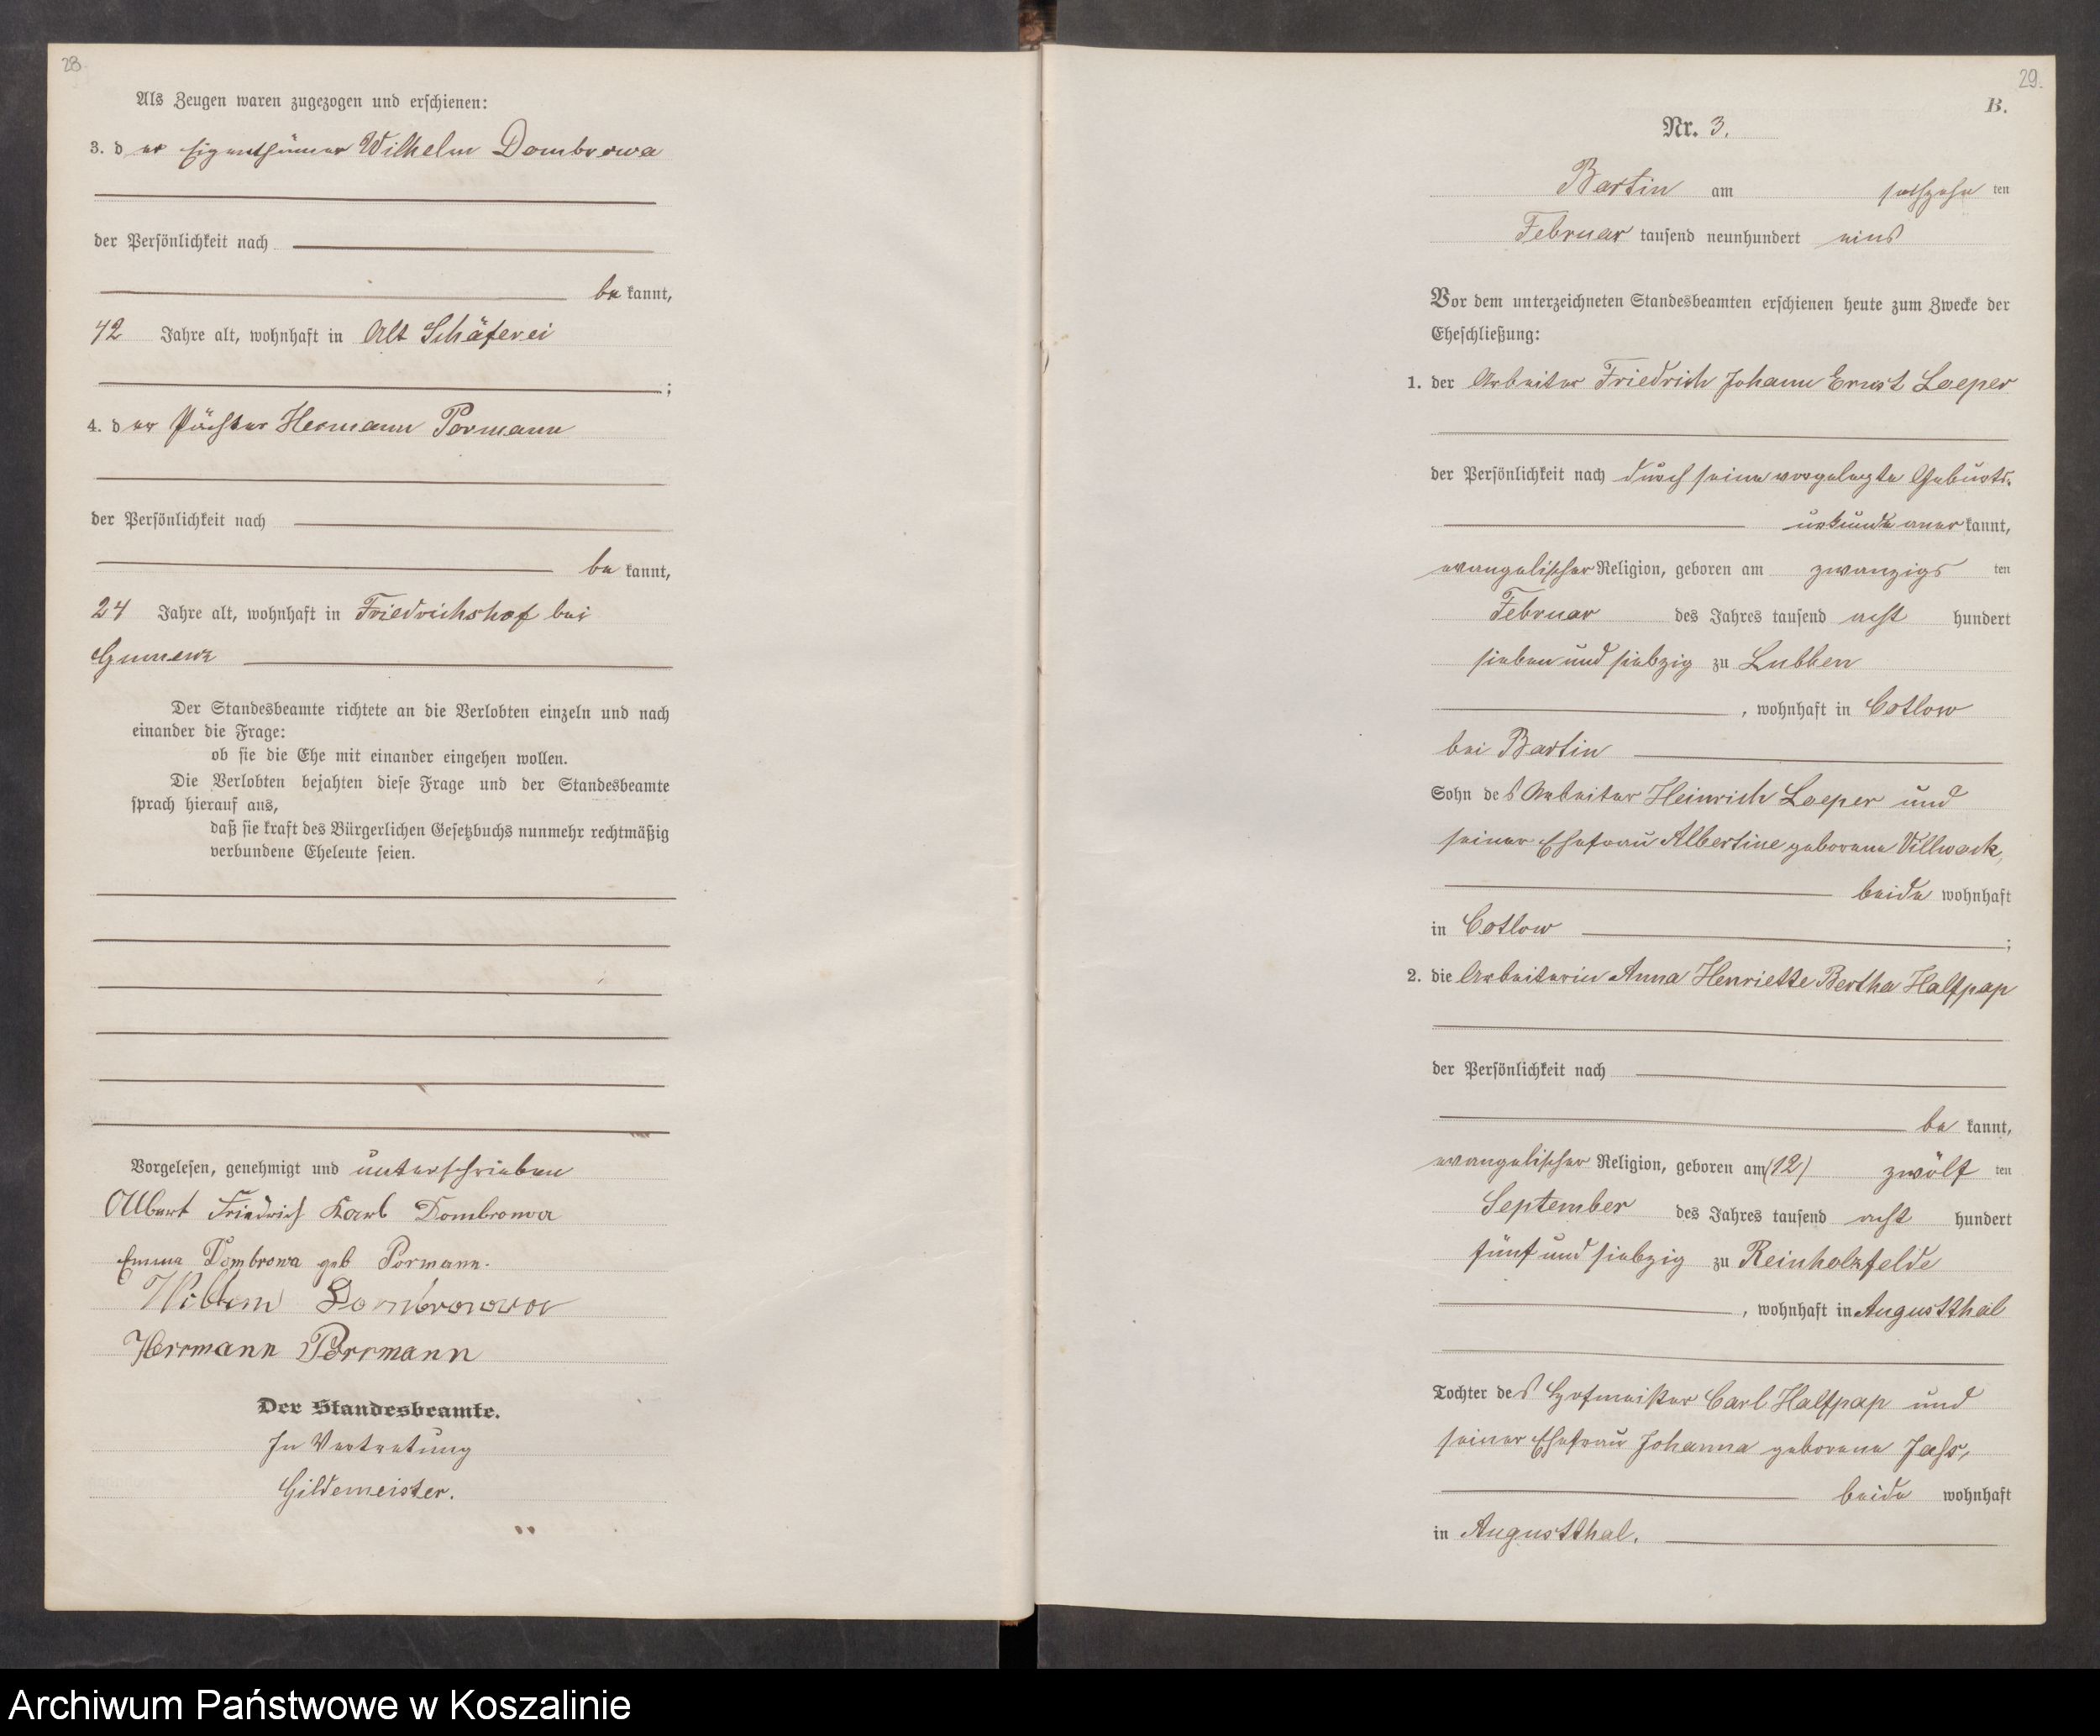 28.
Als Zeugen waren zugezogen und erschienen:
3. der Eigenthümer Wilhelm Dombrowa
der Persönlichkeit nach
be kannt,
42 Jahre alt, wohnhaft in Alt Schäferei
;
4. der Pächter Hermann Pormann
der Persönlichkeit nach
be kannt,
24 Jahre alt, wohnhaft in Friedrichshof bei
Gumenz
Der Standesbeamte richtete an die Verlobten einzeln und nach
einander die Frage:
ob sie die Ehe mit einander eingehen wollen.
Die Verlobten bejahten diese Frage und der Standesbeamte
sprach hierauf aus,
daß sie kraft des Bürgerlichen Gesetzbuchs nunmehr rechtmäßig
verbundene Eheleute seien.
Vorgelesen, genehmigt und unterschrieben
Albert Friedrich Karl Dombrowa
Emma Dombrowa geb Pormann.
Wilhem Dombrowa
Herrmann Porrmann
Der Standesbeamte.
In Vertretung
Gildemeister.
29.
B.
Nr. 3.
Bartin am sechzehn ten
Februar tausend neunhundert eins
Vor dem unterzeichneten Standesbeamten erschienen heute zum Zwecke der
Eheschließung:
1. der Arbeiter Friedrich Johann Ernst Loeper
der Persönlichkeit nach durch seine vorgelegte Geburts-
urkunde aner kannt,
evangelischer Religion, geboren am zwanzigs ten
Februar des Jahres tausend acht hundert
sieben und siebzig zu Lubben
, wohnhaft in Cotlow
bei Bartin
Sohn des Arbeiter Heinrich Loeper und
seiner Ehefrau Albertine geborene Villwock,
beide wohnhaft
in Cotlow ;
2. die Arbeiterin Anna Henriette Bertha Halfpap
der Persönlichkeit nach
be kannt,
evangelischer Religion, geboren am (12) zwölf ten
September des Jahres tausend acht hundert
fünf und siebzig zu Reinholzfelde
, wohnhaft in Augustthal
Tochter des Hofmeister Carl Halfpap und
seiner Ehefrau Johanna geborene Jahr,
beide wohnhaft
in Augustthal.
Archiwum Państwowe w Koszalinie